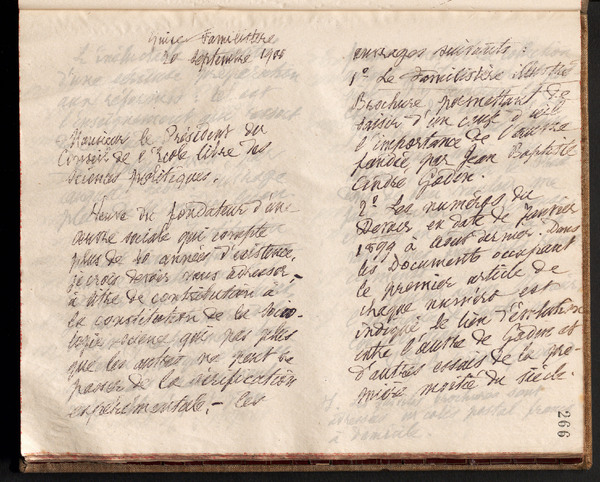 Guise Familistère
20 septembre 1900
Monsieur le Président du
Conseil de l'Ecole libre des
sciences politiques.
Veuve du fondateur d'une
œuvre sociale qui compte
plus de 20 années d'existence,
je crois devoir vous adresser,
à titre de contribution à
la constitution de la socio-
logie science qui pas plus
que les autres ne peut se
passer de la vérification
expérimentale, - les
ouvrages suivants :
1º Le Familistère illustré
Brochure permettant de
saisir d'un coup d'œil
l'importance de l'œuvre
fondée par Jean Baptiste
André Godin.
2º Les numéros du
Devoir en date de Janvier
1899 à Août dernier. Dans
les Documents occupant
le premier article de
chaque numéro est
indiqué le lien d'évolution
entre l'œuvre de Godin et
d'autres essais de la pre-
mière moitié du siècle.
brochures sont
colis postal franco
à domicile.
266